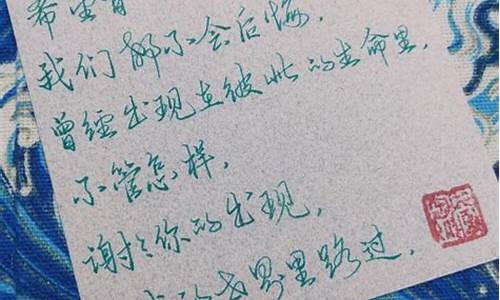 希望
我们都不会后悔,
曾经出现在彼此的生命里,
不管怎样,
谢谢你的出现,
的世界里路过.